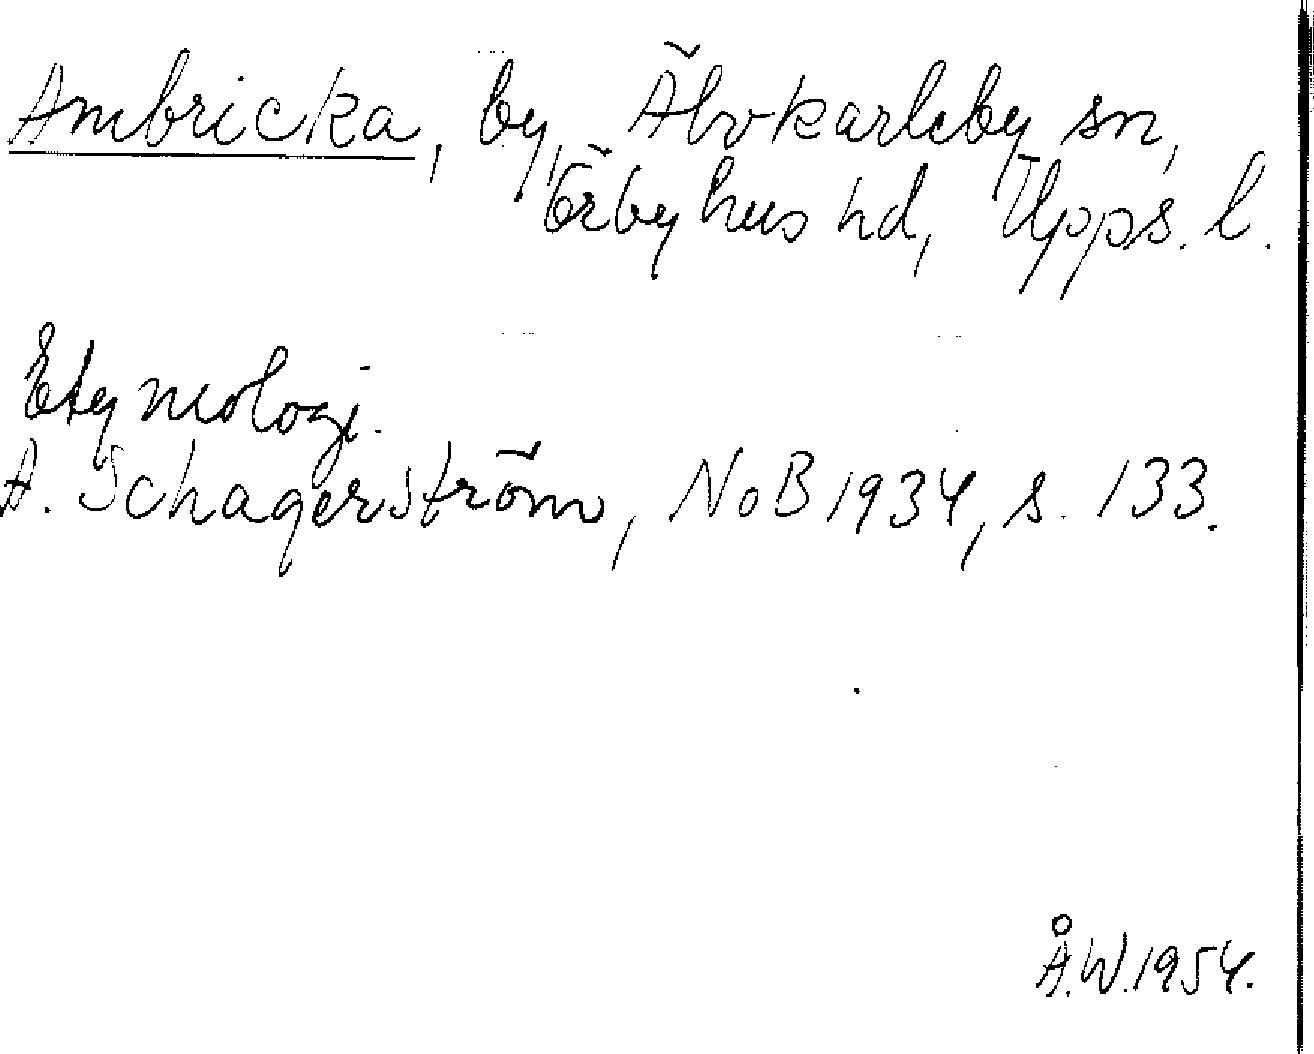 Ambricka, by, Älvkarleby sn,
Örbyhus hd, Upps. l.
Etymologi.
A. Schagerström, NoB 1934, s. 133.
Å.W. 1954.